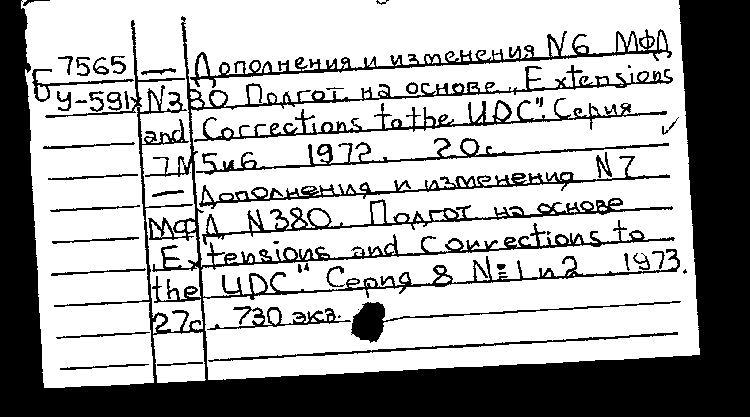 Б 7565 — Дополнения и изменения N6 МФД
У-591х N380 Подгот. на основе „Extensions
and Corrections to the UDC". Серия
7 N5и6. 1972. 20с.
— Дополнения и изменения N7
МФД N380. Подгот на основе
„Extensions and Corrections to
the UDC". Серия 8 N=1и2. 1973.
27с. 730 экз.